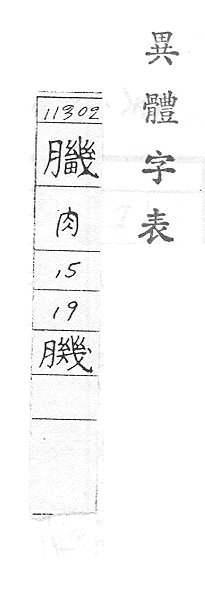 異體字表
11302
肉
15
19
𦠄